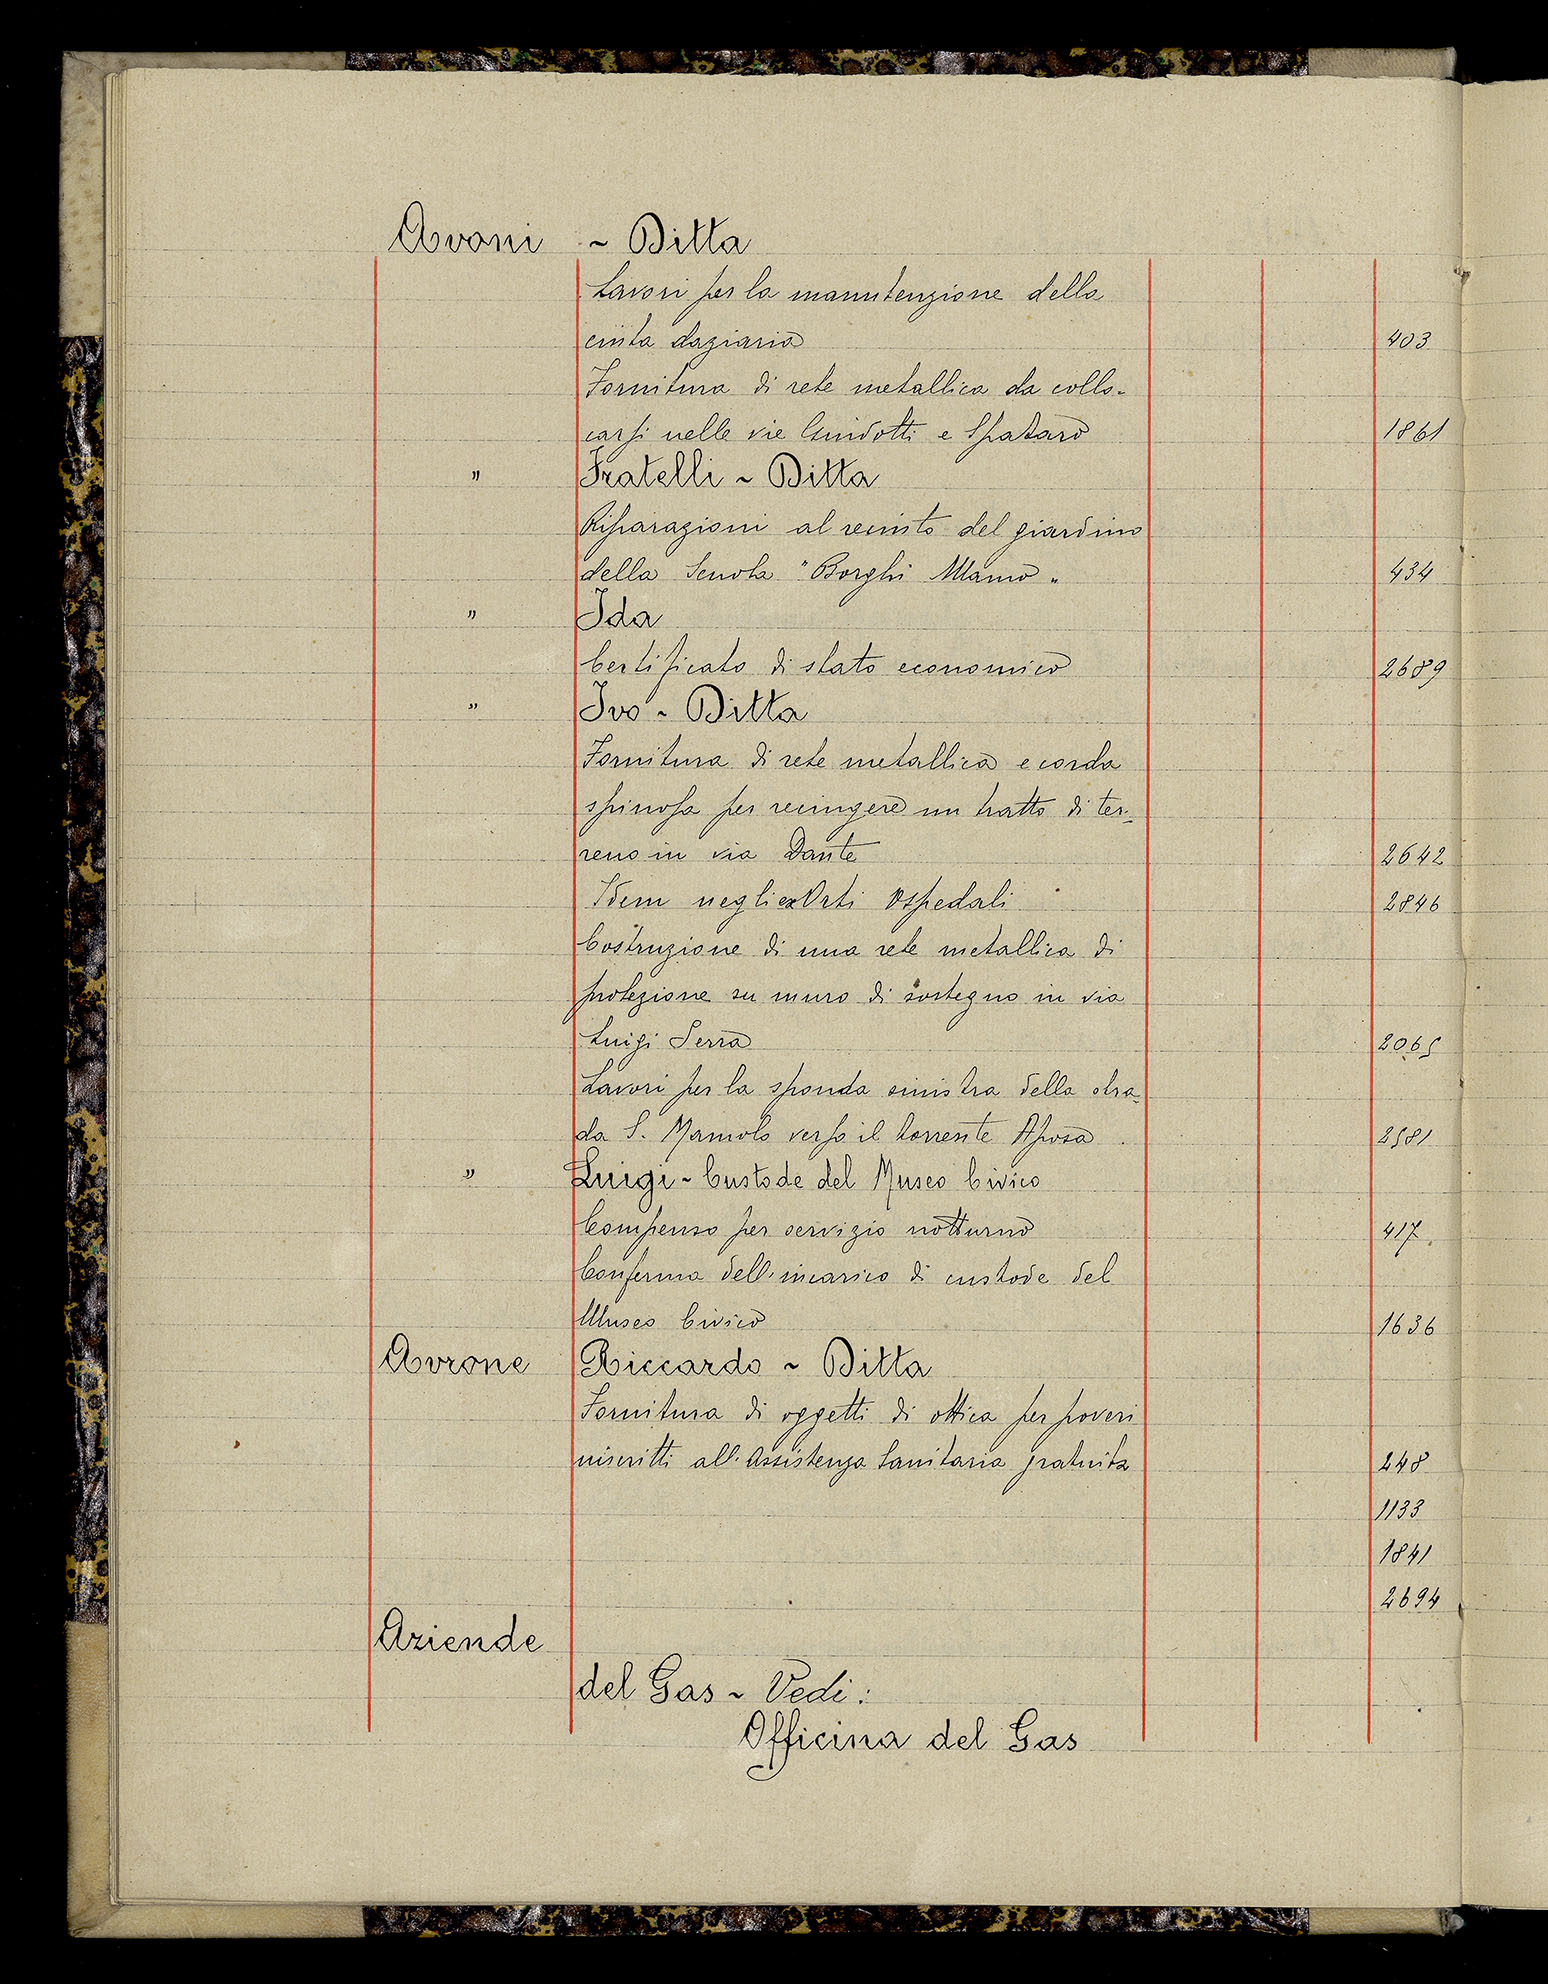 Avoni ~ Ditta
Lavori per la manutenzione della
cinta daziaria 403
Fornitura di rete metallica da collo-
carsi nelle vie Guidotti e Spataro 1861
" Fratelli ~ Ditta
Riparazioni al recinto del giardino
della Scuola "Borghi Mamo" 434
" Ida
Certificato di stato economico 2689
" Ivo - Ditta
Fornitura di rete metallica e corda
spinosa per recingere un tratto di ter-
reno in via Dante 2642
Idem negli ex Orti Ospedali 2846
Costruzione di una rete metallica di
protezione su muro di sostegno in via
Luigi Serra 2065
Lavori per la sponda sinistra della stra-
da S. Mamolo verso il torrente Aposa 2581
" Luigi - Custode del Museo Civico
Compenso per servizio notturno 417.
Conferma dell'incarico di custode del
Museo Civico 1636
Avrone Riccardo ~ Ditta
Fornitura di oggetti di ottica per poveri
inscritti all'Assistenza Sanitaria gratuita 248
1133
1841
2694
Aziende
del Gas ~ Vedi:
Officina del Gas